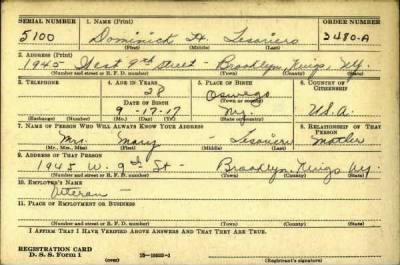 SERIAL NUMBER 1. NAME (Print) ORDER NUMBER
5100 Dominick H. Lesoriero 3480-A
(First) (Middle) (Last)
2. ADDRESS (Print)
1945 West 9th Street - Brooklyn, Kings, Ny.
(Number and street or R. F. D. number) (Town) (County) (State)
3. TELEPHONE 4. AGE IN YEARS 5. PLACE OF BIRTH 6. COUNTRY OF CITIZENSHIP
28 Oswego
DATE OF BIRTH (Town or county)
9-17-17 Ny. U.S.A.
(Exchange) (Number) (Mo.) (Day) (Yr.) (State or country)
7. NAME OF PERSON WHO WILL ALWAYS KNOW YOUR ADDRESS 8. RELATIONSHIP OF THAT PERSON
Mrs. Mary - Mother
(Mr., Mrs., Miss) (First) (Middle) (Last)
9. ADDRESS OF THAT PERSON
1945 W. 9th St - Brooklyn, Kings Ny
(Number and street or R. F. D. number) (Town) (County) (State)
10. EMPLOYER'S NAME
Veteran -
11. PLACE OF EMPLOYMENT OR BUSINESS
(Number and street or R. F. D. number) (Town) (County) (State)
I AFFIRM THAT I HAVE VERIFIED ABOVE ANSWERS AND THAT THEY ARE TRUE.
REGISTRATION CARD
D. S. S. Form 1 (over) (Registrant's signature)